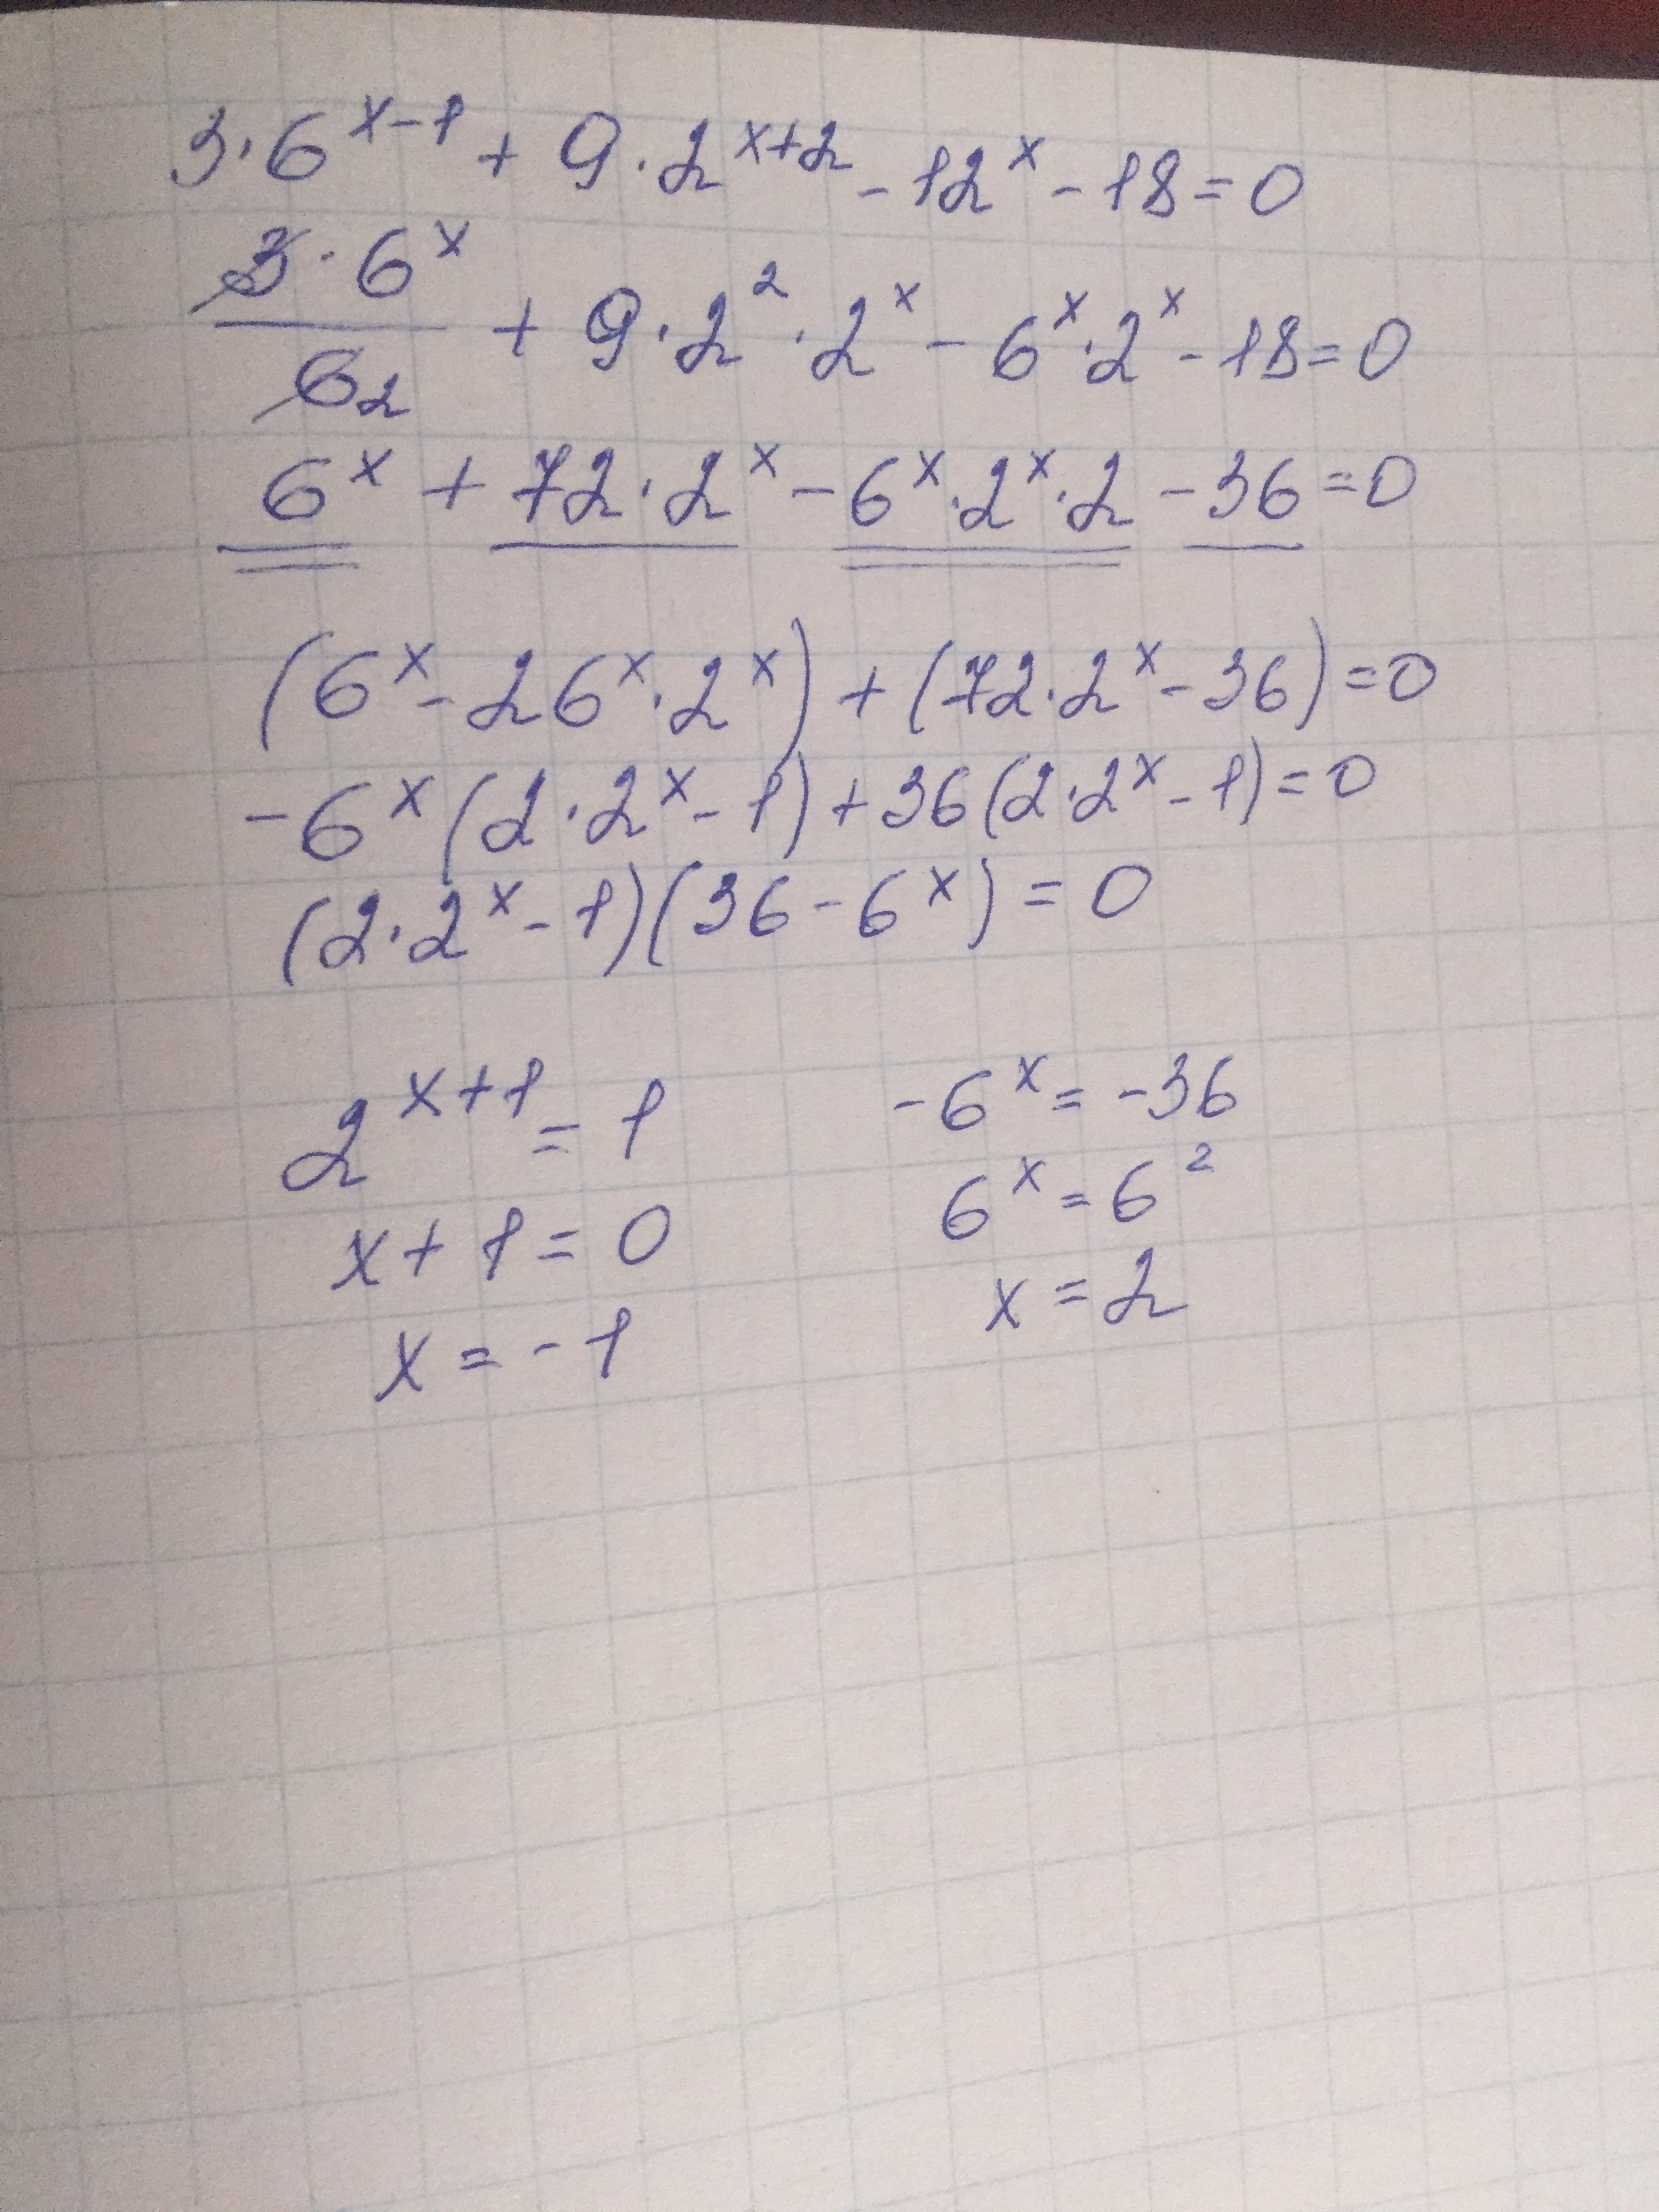 3·6^(x-1) + 9·2^(x+2) - 12^x - 18 = 0
3·6^x / 6 2 + 9·2^2·2^x - 6^x·2^x - 18 = 0
6^x + 72·2^x - 6^x·2^x·2 - 36 = 0
(6^x - 2 6^x·2^x) + (72·2^x - 36) = 0
-6^x (2·2^x - 1) + 36 (2·2^x - 1) = 0
(2·2^x - 1)(36 - 6^x) = 0
2^(x+1) = 1
x + 1 = 0
x = -1
-6^x = -36
6^x = 6^2
x = 2